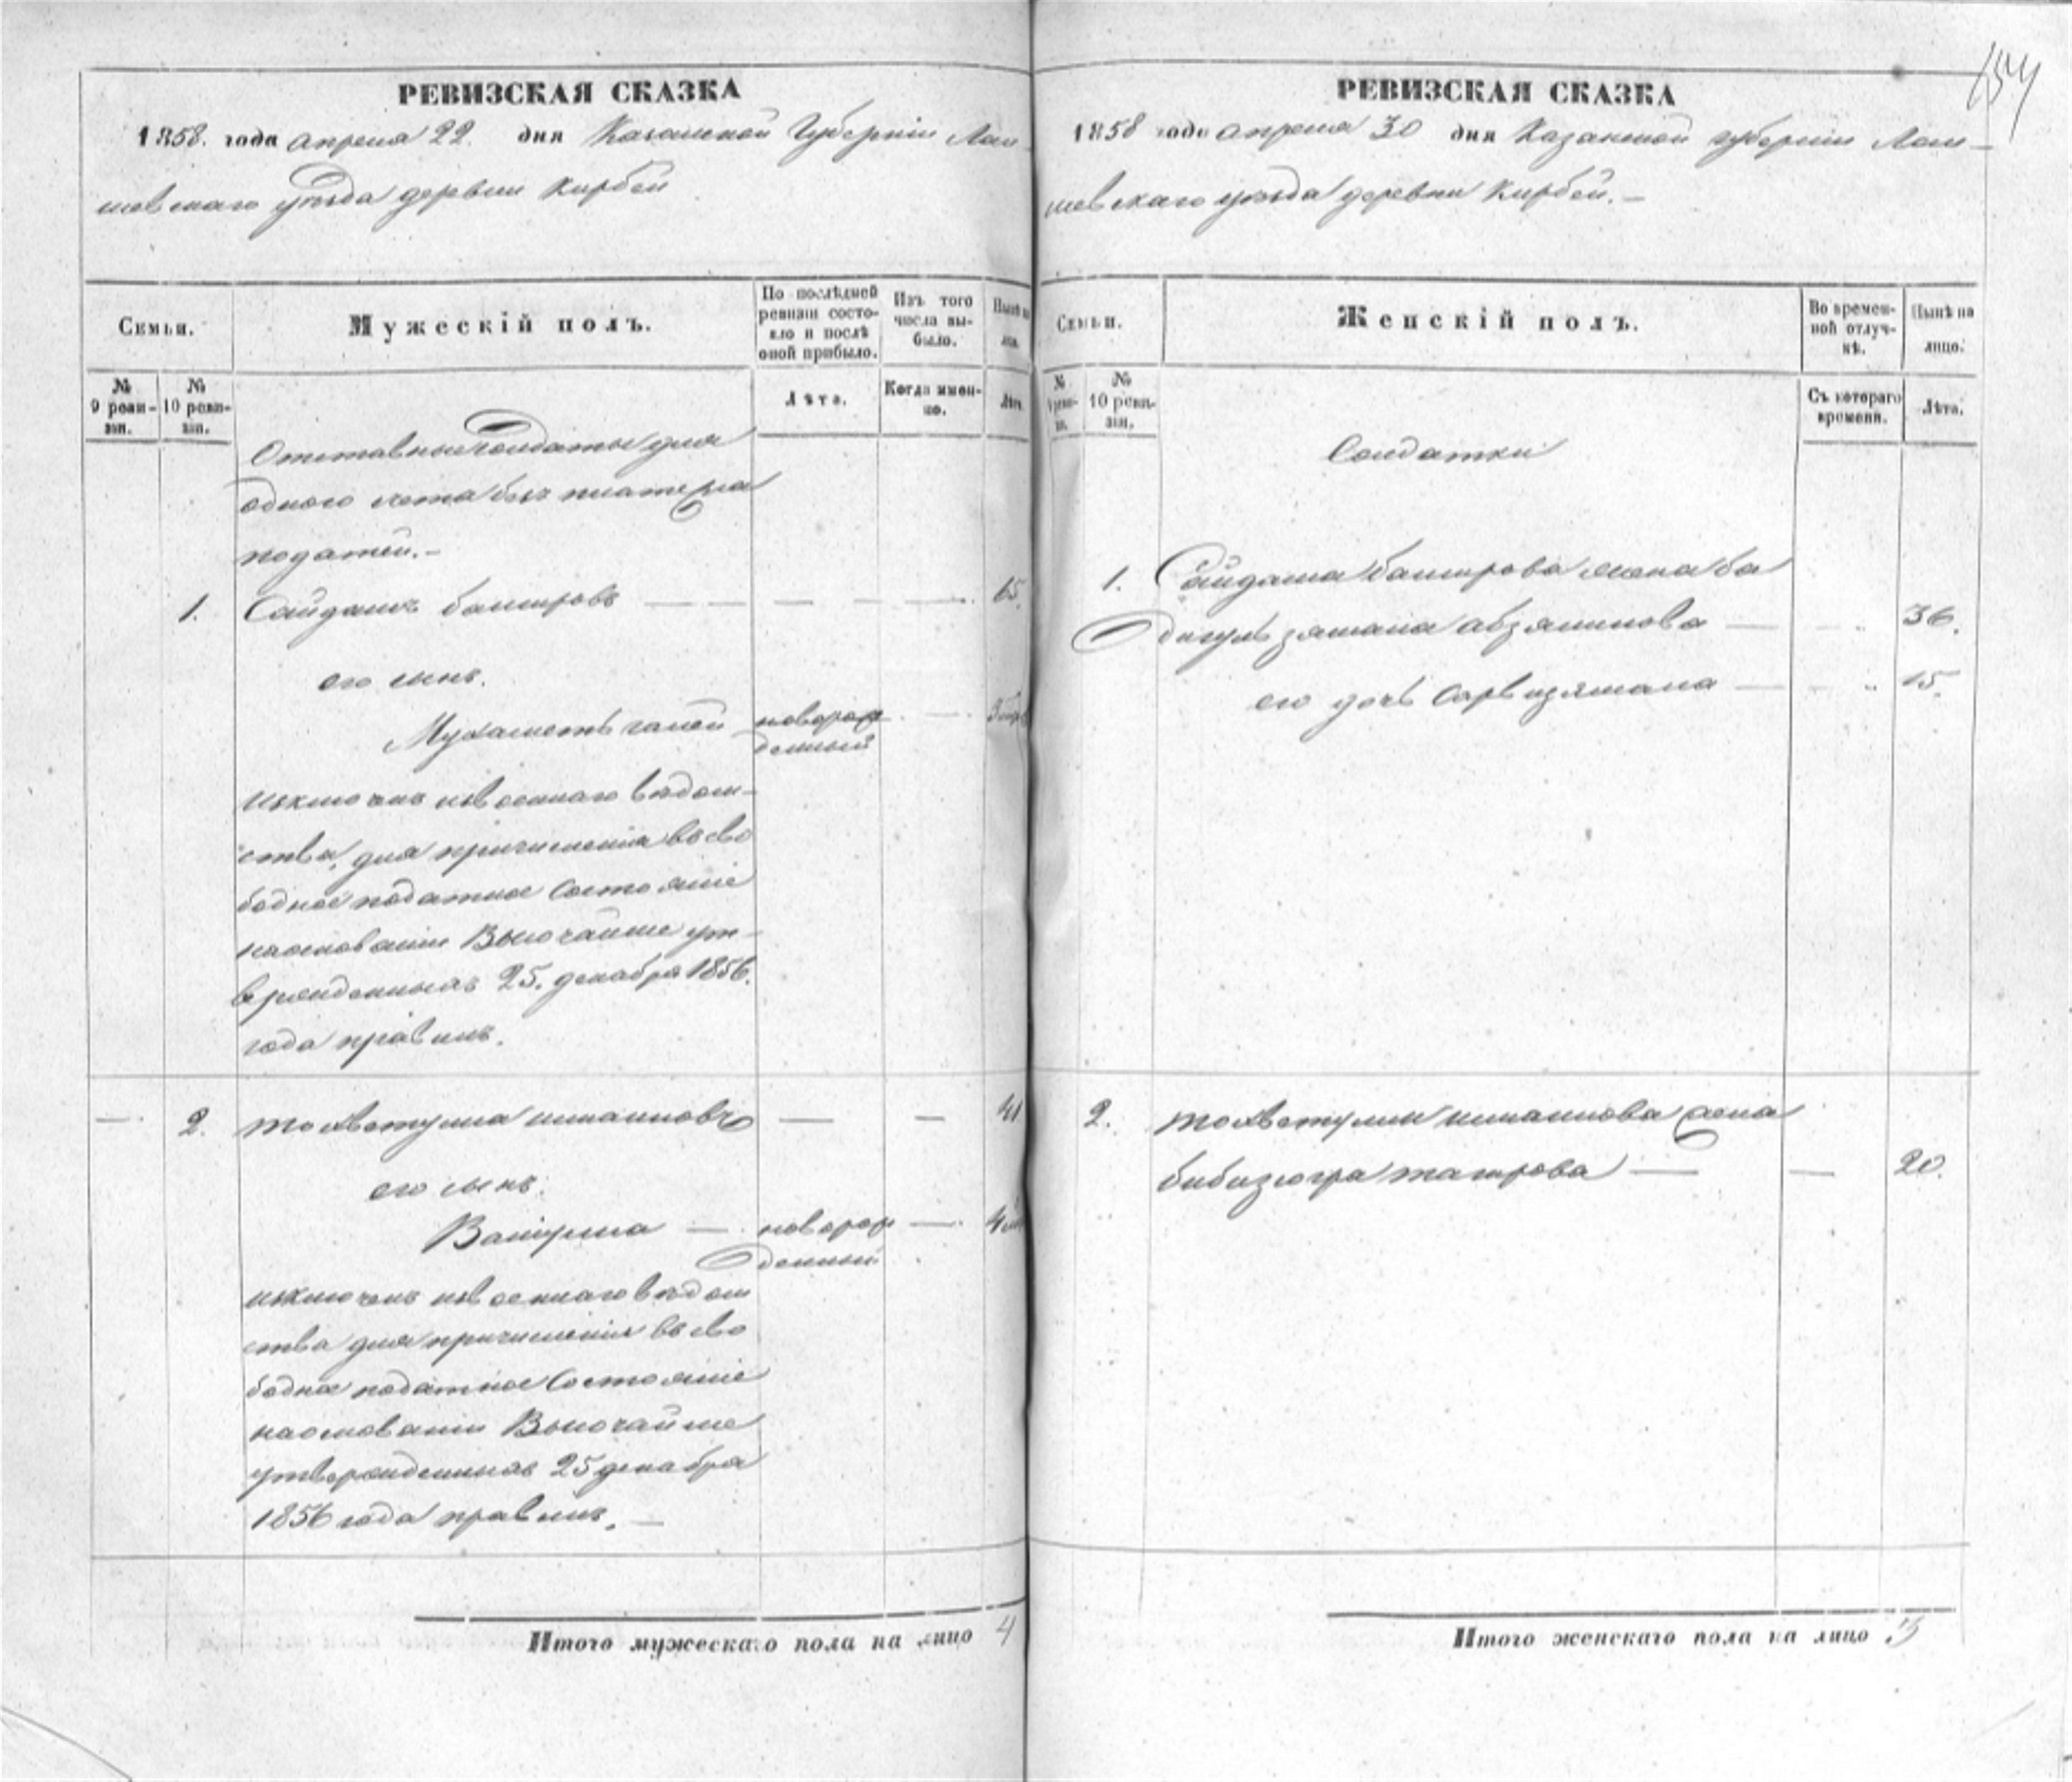 154
РЕВИЗСКАЯ СКАЗКА
1858. года апреля 22. дня Казанской Губерніи Лаи-
шевскаго уѣзда деревни Кирбей
Семьи.
Мужескій полъ.
По послѣдней ревизіи состо-
яло и послѣ оной прибыло.
Изъ того числа вы-
было.
Нынѣ на
№ 9 реви-
зіи.
№ 10 реви-
зіи.
Лѣта.
Когда имен-
но.
Лѣта
Отставные солдаты для
одного счета безъ платежа
податей.-
1. Сайдашъ башировъ — — — — 65.
его сынъ.
Мухаметь галей новорож — 3
денный
изключенъ извоеннаго вѣдом-
ства, для причисленія въсво
бодное податное состояніе
наоснованіи Высочайше ут-
вержденныхъ 25. декабря 1856.
года правилъ.
— 2. тохветулла — — 41
его сынъ.
Валиулла — новорож — 4
денный
изключенъ извоеннаго вѣдом
ства для причисленія въсво
бодное податное состояніе
наоснованіи Высочайше
утвержденныхъ 25 декабря
1856 года правилъ. —
Итого мужескаго пола на лицо 4
РЕВИЗСКАЯ СКАЗКА
1858 года апреля 30 дня Казанской губерніи Лаи-
шевскаго уѣзда деревни Кирбей.-
Семьи.
Женскій полъ.
Во времен-
ной отлуч-
кѣ.
Нынѣ на
лицо.
№ 9 реви-
зіи.
№ 10 реви-
зіи.
Съ котораго
времени.
Лѣта.
Солдатки
1. Сайдаша баширова жена ба
дигулъ зямала абзялилова — 36.
его дочь сарвизямала — 15.
2. тохветулли жена
бибизюгра таирова — — 20.
Итого женскаго пола на лицо 3